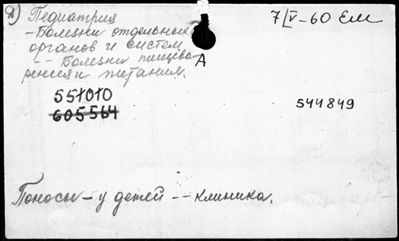 2) Педиатрия
7/V-60 Ем
- Болезни отдельных
органов и систем
-- Болезни пищева-
рения и питания.
А
551010
605564
544849
Поносы - у детей -- клиника.